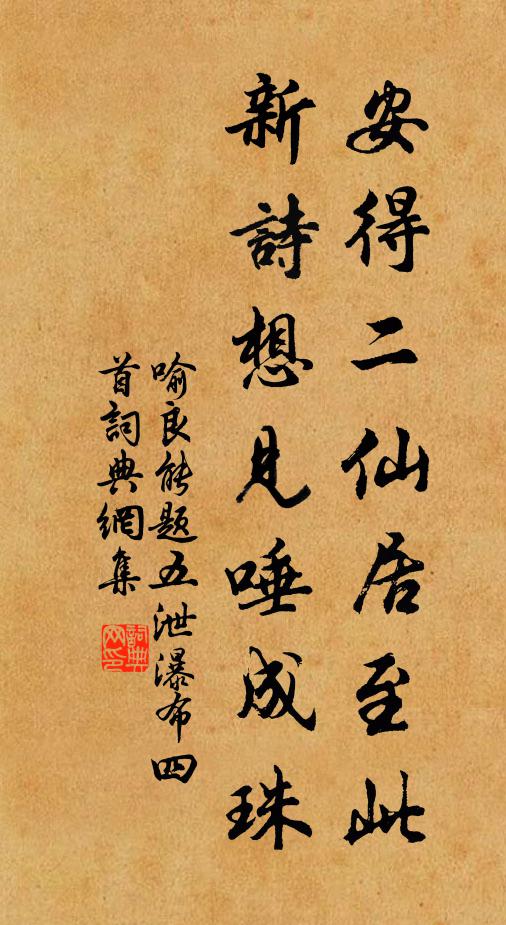 安得二仙居至此
新詩想見唾成珠
喻良能題五泄瀑布四
首詞典網集
詞典
网印